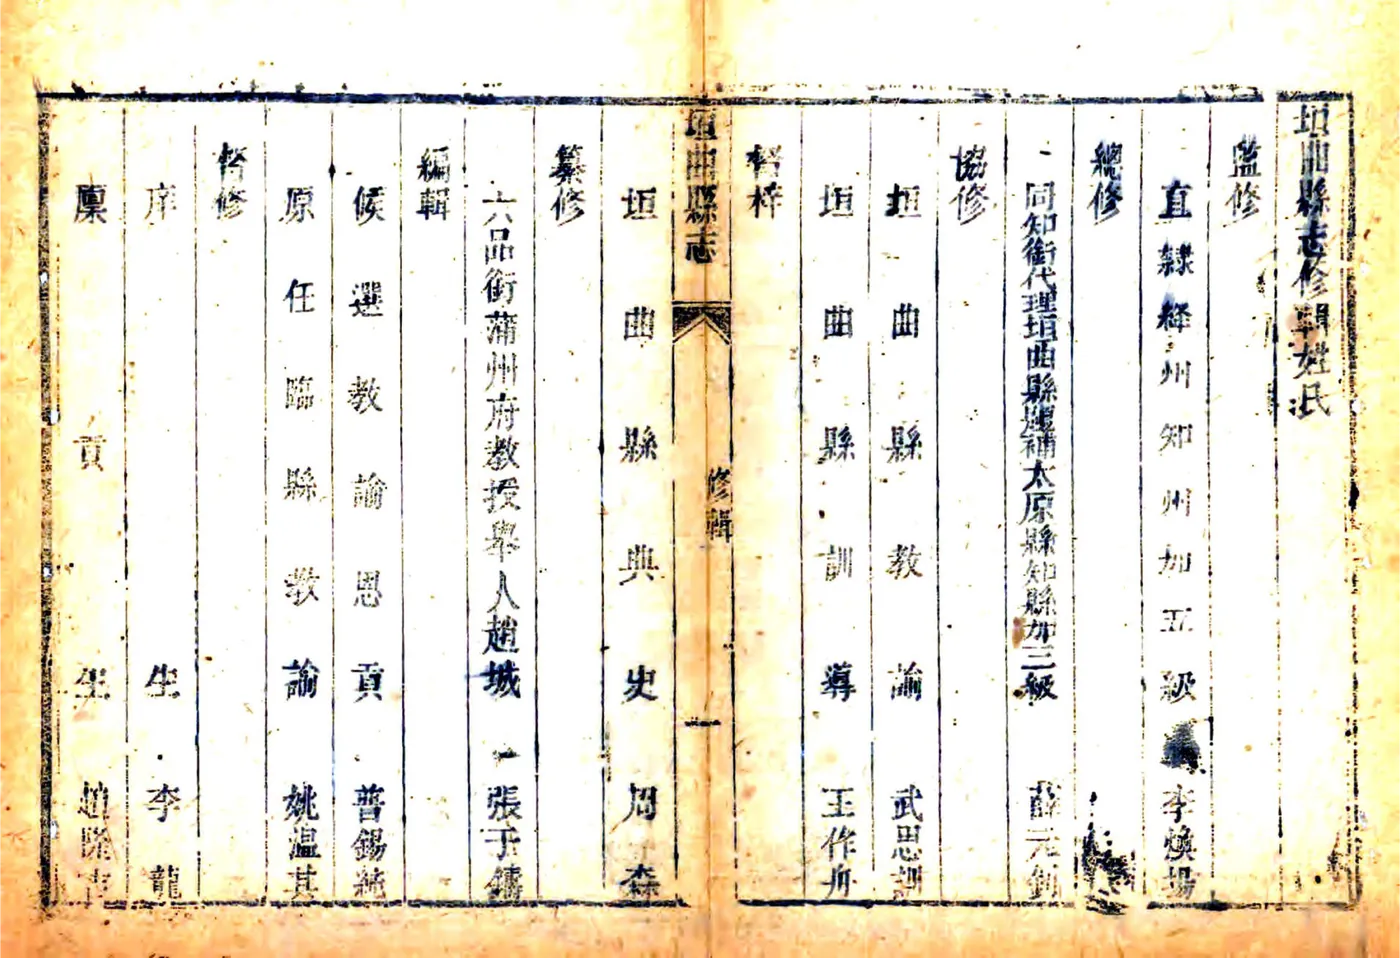 垣曲縣志修輯姓氏
監修
直隸絳州知州加五級 李煥揚
總修
同知銜代理垣曲縣題補太原縣知縣加三級 薛元釗
協修
垣曲縣教諭 武思訓
垣曲縣訓導 王作舟
督梓
垣曲縣志 修輯 一
垣曲縣典史 周森
纂修
六品銜蒲州府教授舉人趙城 張于鑄
編輯
候選教諭恩貢 普錫純
原任臨縣教諭 姚溫其
督修
庠生 李龍
廩貢生 趙隆